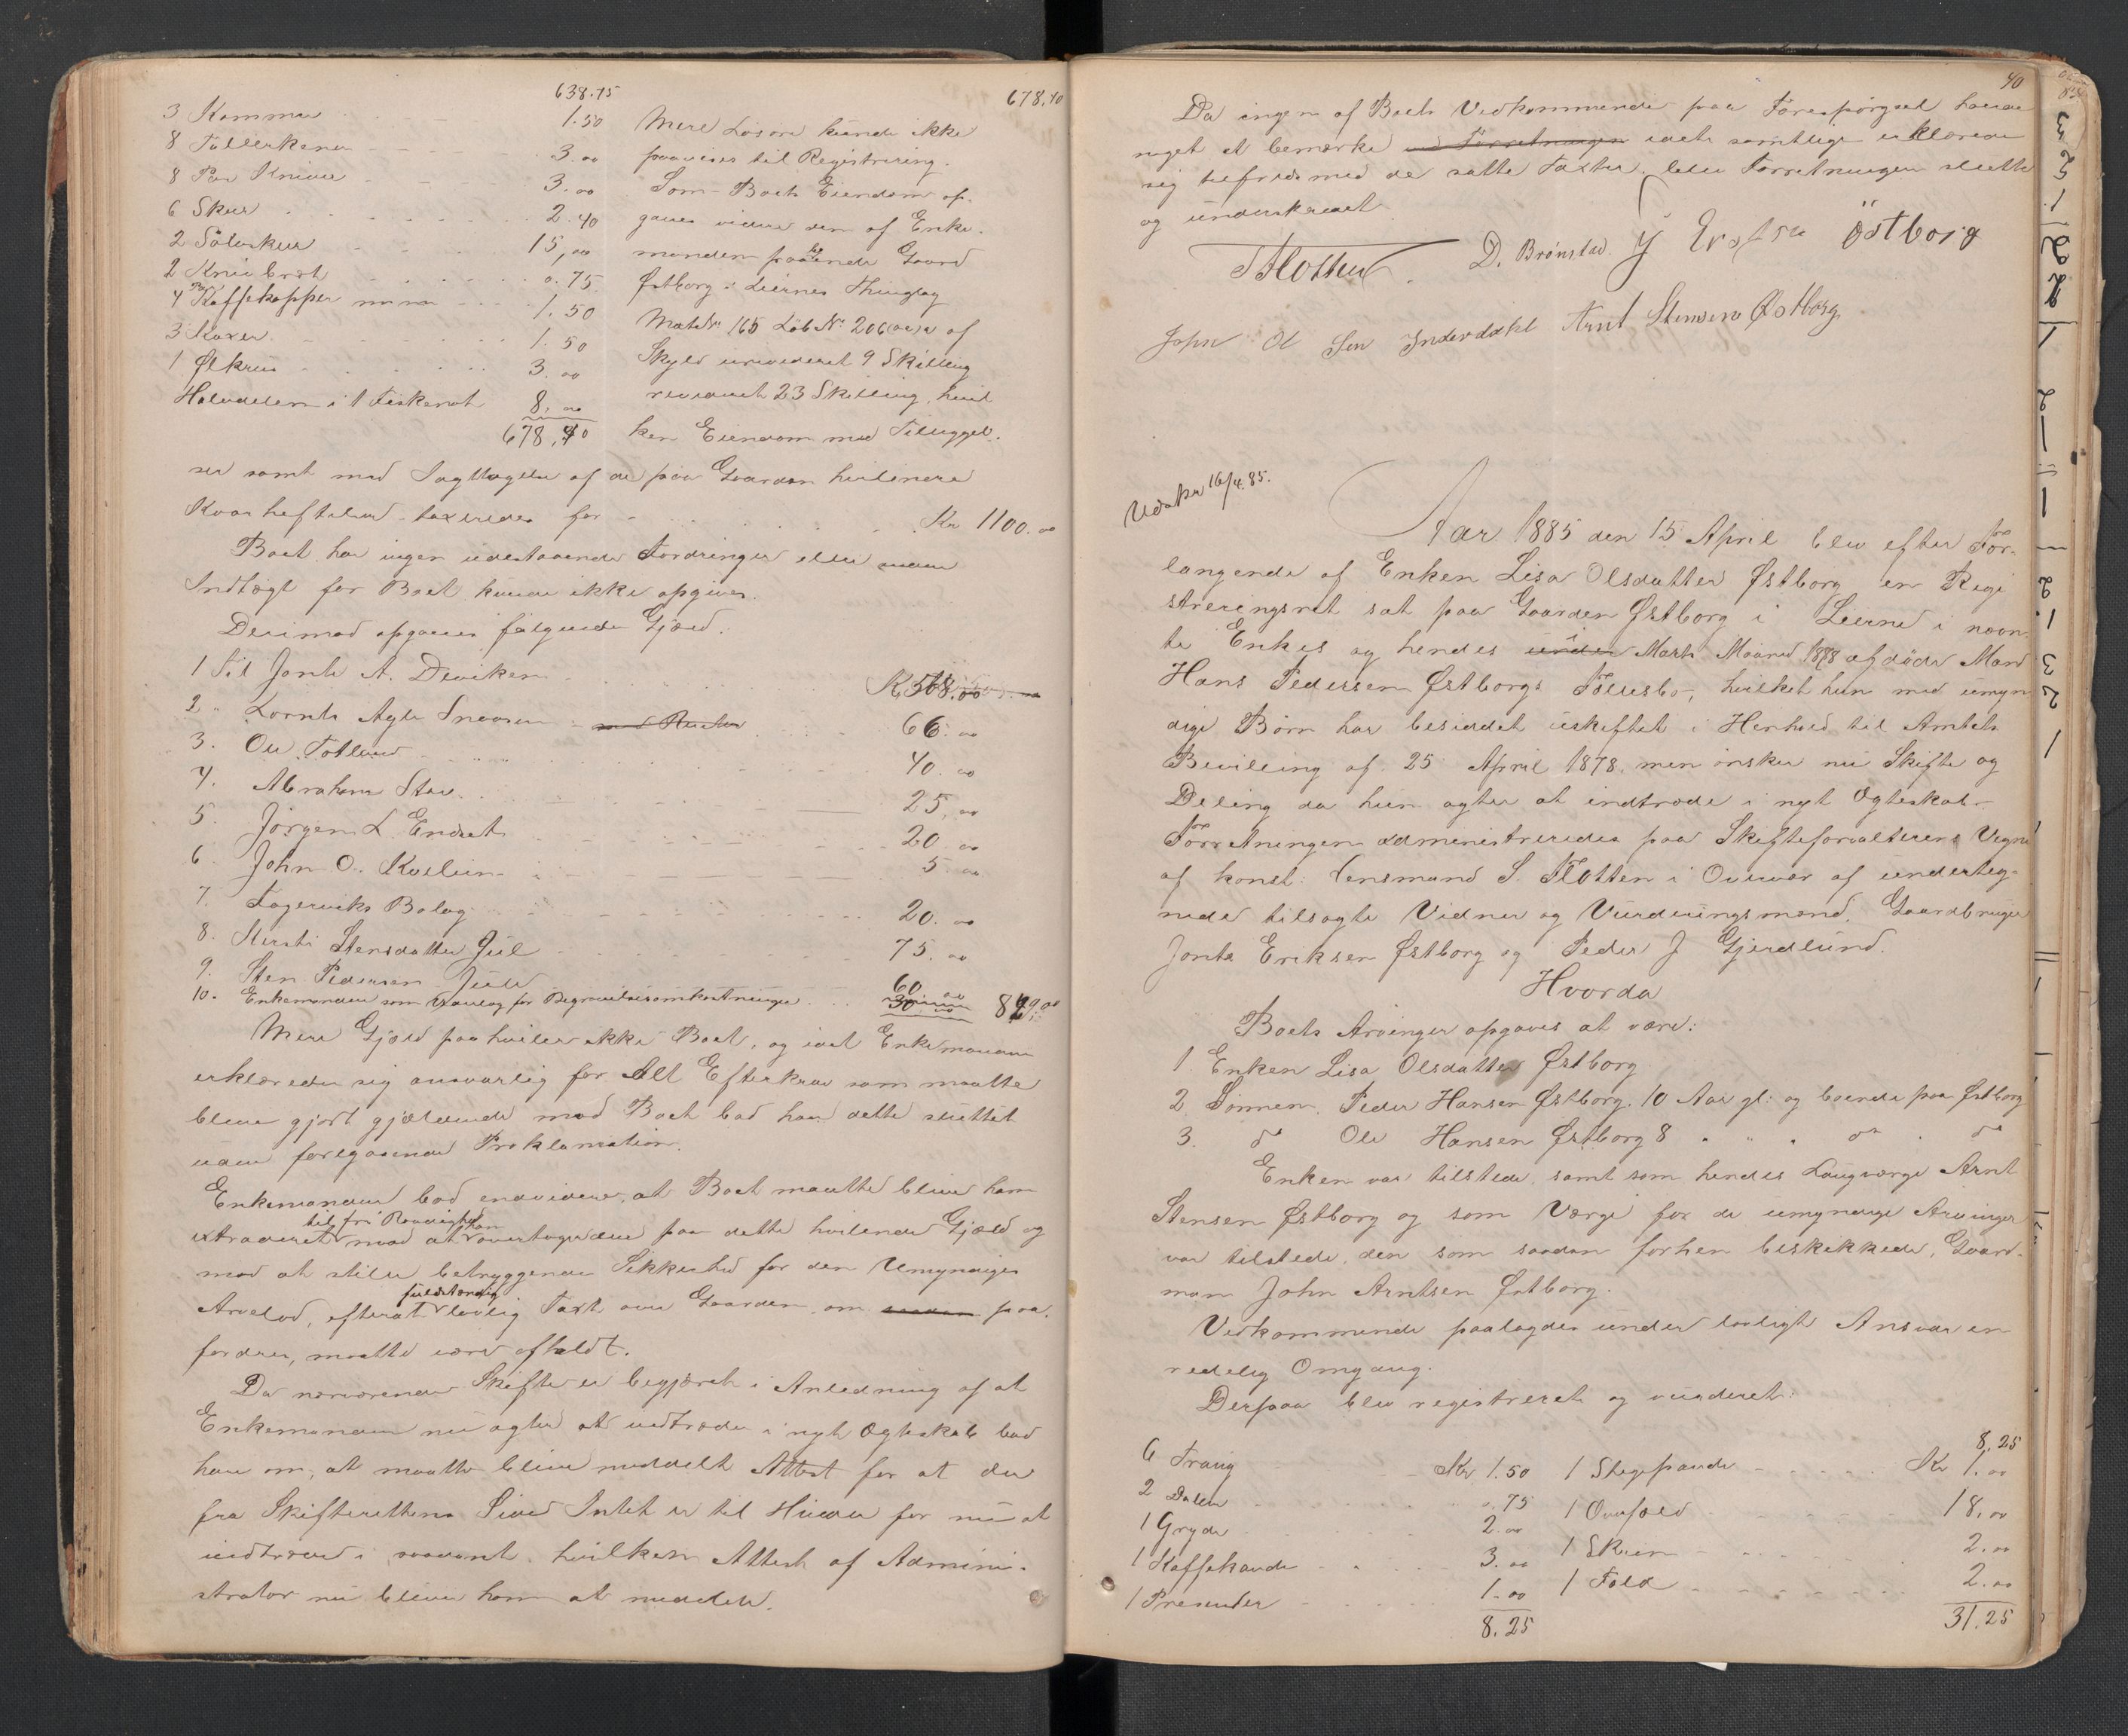 638.15
3 Kommer 1.50
8 Tallerkener 3.00
8 Par Knive 3.00
6 Skeer 2.40
2 Sölvskeer 15,00
2 Knivbræt 0.75
4 Par Kaffekopper m m 1.50
3 1.50
1 Ølkrus 3.00
Halvdelen i 1 Fiskenot 8,00
678,40
678,40
Mere Løsøre kunde ikke
paavises til Registrering.
Som Boets Eiendom op-
gaves videre den af Enke-
manden paaboende Gaard
Østborg i Liernes Thinglag
Mat. Nr. 165 Løb Nr. 206 af
Skyld urevideret 9 Skilling
revideret 23 Skilling, hvil
ken Eiendom med Tilligggel-
ser samt med Iagttagelse af de paa Gaarden hvilende
Kaarheftelser taxeredes for Kr 1100.00
Boet har ingen udestaaende Fordringer eller anden
Indtægt for Boet kunde ikke opgives.
Derimod opgaves følgende Gjæld:
1 Til Jonts A. Deviken K 508.00
2 " Lornts Agle Snaasen med Renter 66.00
3. Ole Totland 40.00
4. Abraham Stav 25,00
5. Jørgen L. Endset 20.00
6. John O. Kvelien 5.00
7. Lagerviks Bolag 20.00
8. Kirsti Stensdatter Juel 75.00
9. Sten Pedersen Juul 60.00
10. Enkemanden som Udlæg for Begravelsesomkostninger 30.00
Mere Gjæld paahviler ikke Boet, og idet Enkemanden
erklærede sig ansvarlig for Alt Efterkrav som maatte
blive gjort gjældende mod Boet bad han dette sluttet
uden foregaaende Proklamation.
Enkemanden bad endvidere, at Boet maatte blive ham
til fri Raadighed han
extraderet mod at overtage den paa dette hvilende Gjæld og
mod at stille betryggende Sikkerhed for den Umyndiges
fuldstændig
Arvelod, efterat lovlig Taxt over Gaarden, om saadan paa-
fordres, maatte være afholdt.
Da nærværende Skifte er begjæret i Anledning af at
Enkemanden nu agter at indtræde i nyt Ægteskab bad
han om, at maatte blive meddelt Attest for at der
fra Skifterettens Side Intet er til Hinder for nu at
indtræde i saadant, hvilken Attest af Admini-
strator nu bliver ham at meddele.
40
Da ingen af Boets Vedkommende paa Forespørgsel havde
noget at bemærke ved Forretningen idet samtlige erklærede
sig tilfreds med de satte Taxter, blev Forretningen sluttet
og underskrevet
S Flotten. D. Brønstad. J Östborg
John Ol Sen Inderdahl Arnt Stensen Østborg.
Udskr 16/4.85.
Aar 1885 den 15 April blev efter For-
langende af Enken Lisa Olsdatter Østborg en Regi
streringsret sat paa Gaarden Østborg i Lierne i nævn-
te Enkes og hendes under i Marts Maaned 1878 afdøde Mand
Hans Pedersen Østborgs Fællesbo, hvilket hun med umyn
dige Børn har besiddet uskiftet i Henhold til Amtets
Bevilling af 25 April 1878, men ønsker nu Skifte og
Deling da hun agter at indtræde i nyt Ægteskab.
Forretningen administreredes paa Skifteforvalterens Vegne
af konst: Lensmand S. Flotten i Overvær af underteg-
nede tilsagte Vidner og Vurderingsmænd, Gaardbruger
Jonts Eriksen Østborg og Peder J Gjerdlund.
Hvorda
Boets Arvinger opgaves at være:
1. Enken Lisa Olsdatter Østborg
2. Sønnen, Peder Hansen Østborg, 10 Aar gl: og boende paa Østborg
3. do Ole Hansen Østborg 8 " " " do " do
Enken var tilstede, samt som hendes Laugværge Arnt
Stensen Østborg og som Værge for de umyndige Arvinger
var tilstede, den som saadan forhen beskikkede, Gaard-
man John Arntsen Østborg.
Vedkommende paalagdes under lovligt Ansvar en
redelig Omgang.
Derpaa blev registreret og vurderet:
6 Traug Kr 1.50
2 Daller 0.75
1 Gryde 2.00
1 Kaffekande 3.00
1 Presenter 1.00
8.25
8.25
1 Stegepande Kr 1.00
1 18,00
1 Skrin 2.00
1 Fold 2.00
31.25